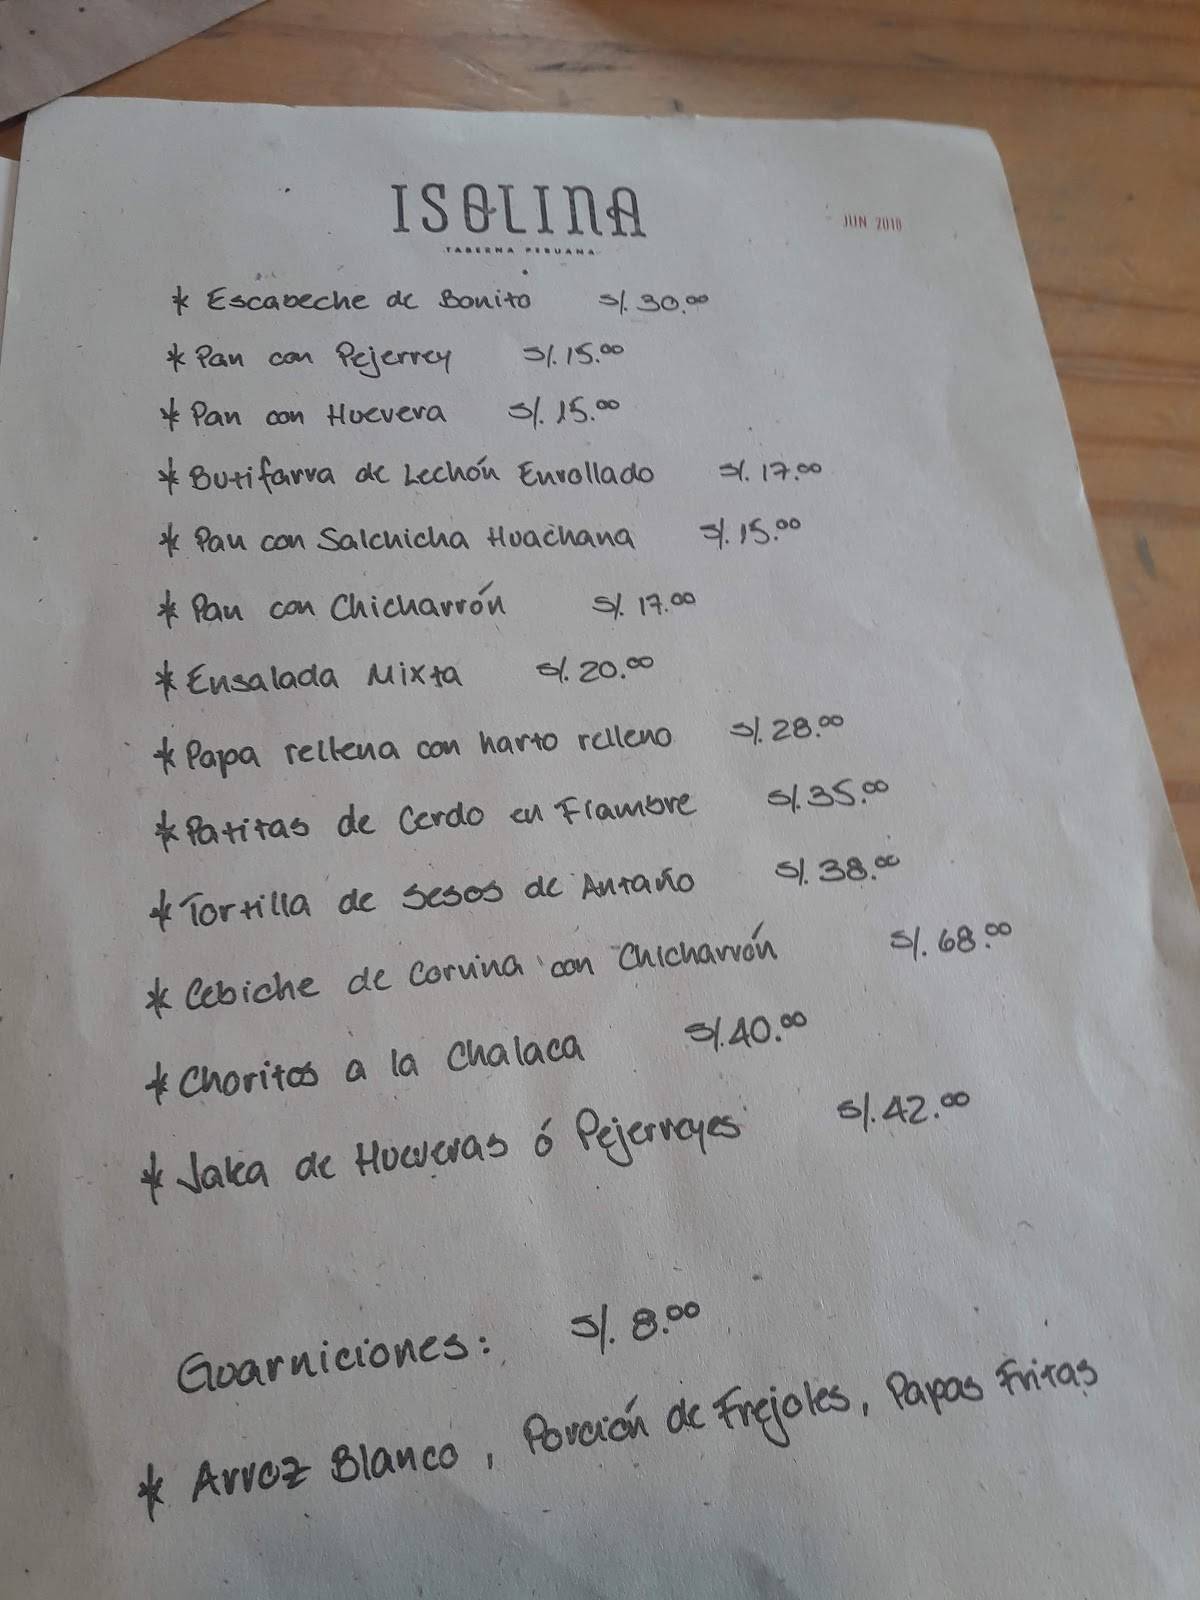 ISOLINA
TABERNA PERUANA
JUN 2018
* Escabeche de Bonito S/. 30.00
* Pan con Pejerrey S/. 15.00
* Pan con Huevera S/. 15.00
* Butifarra de Lechón Enrollado S/. 17.00
* Pan con Salchicha Huachana S/. 15.00
* Pan con Chicharrón S/. 17.00
* Ensalada Mixta S/. 20.00
* Papa rellena con harto relleno S/. 28.00
* Patitas de Cerdo en Fiambre S/. 35.00
* Tortilla de Sesos de Antaño S/. 38.00
* Cebiche de Corvina con Chicharrón S/. 68.00
* Choritos a la Chalaca S/. 40.00
* Jalea de Hueveras ó Pejerreyes S/. 42.00
Guarniciones: S/. 8.00
* Arroz Blanco, Porción de Frejoles, Papas Fritas